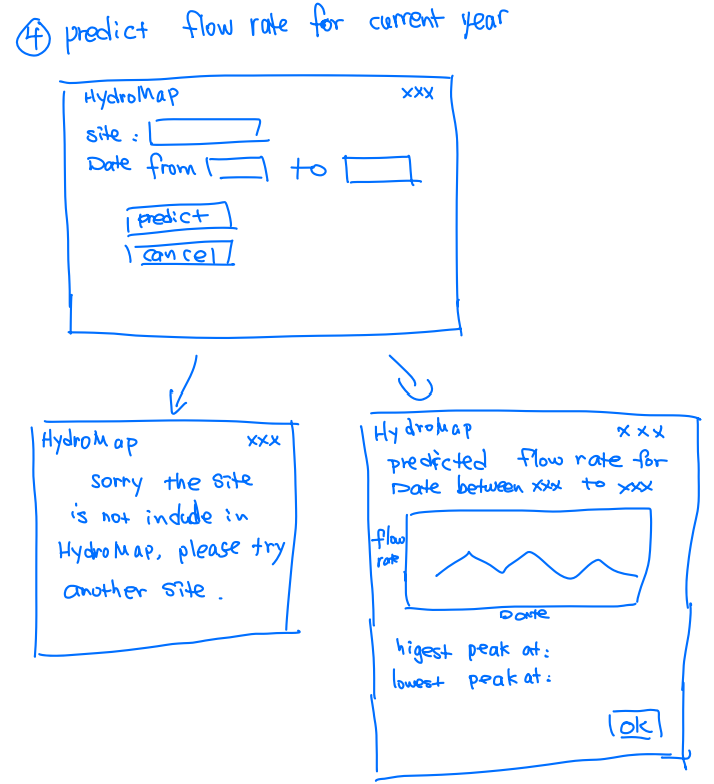 ④ predict flow rate for current year
HydroMap xxx
site :
Date from to
predict
cancel
HydroMap xxx
sorry the site
is not include in
HydroMap, please try
another site .
HydroMap xxx
predicted flow rate for
Date between xxx to xxx
flow
rate
Date
higest peak at :
lowest peak at :
ok